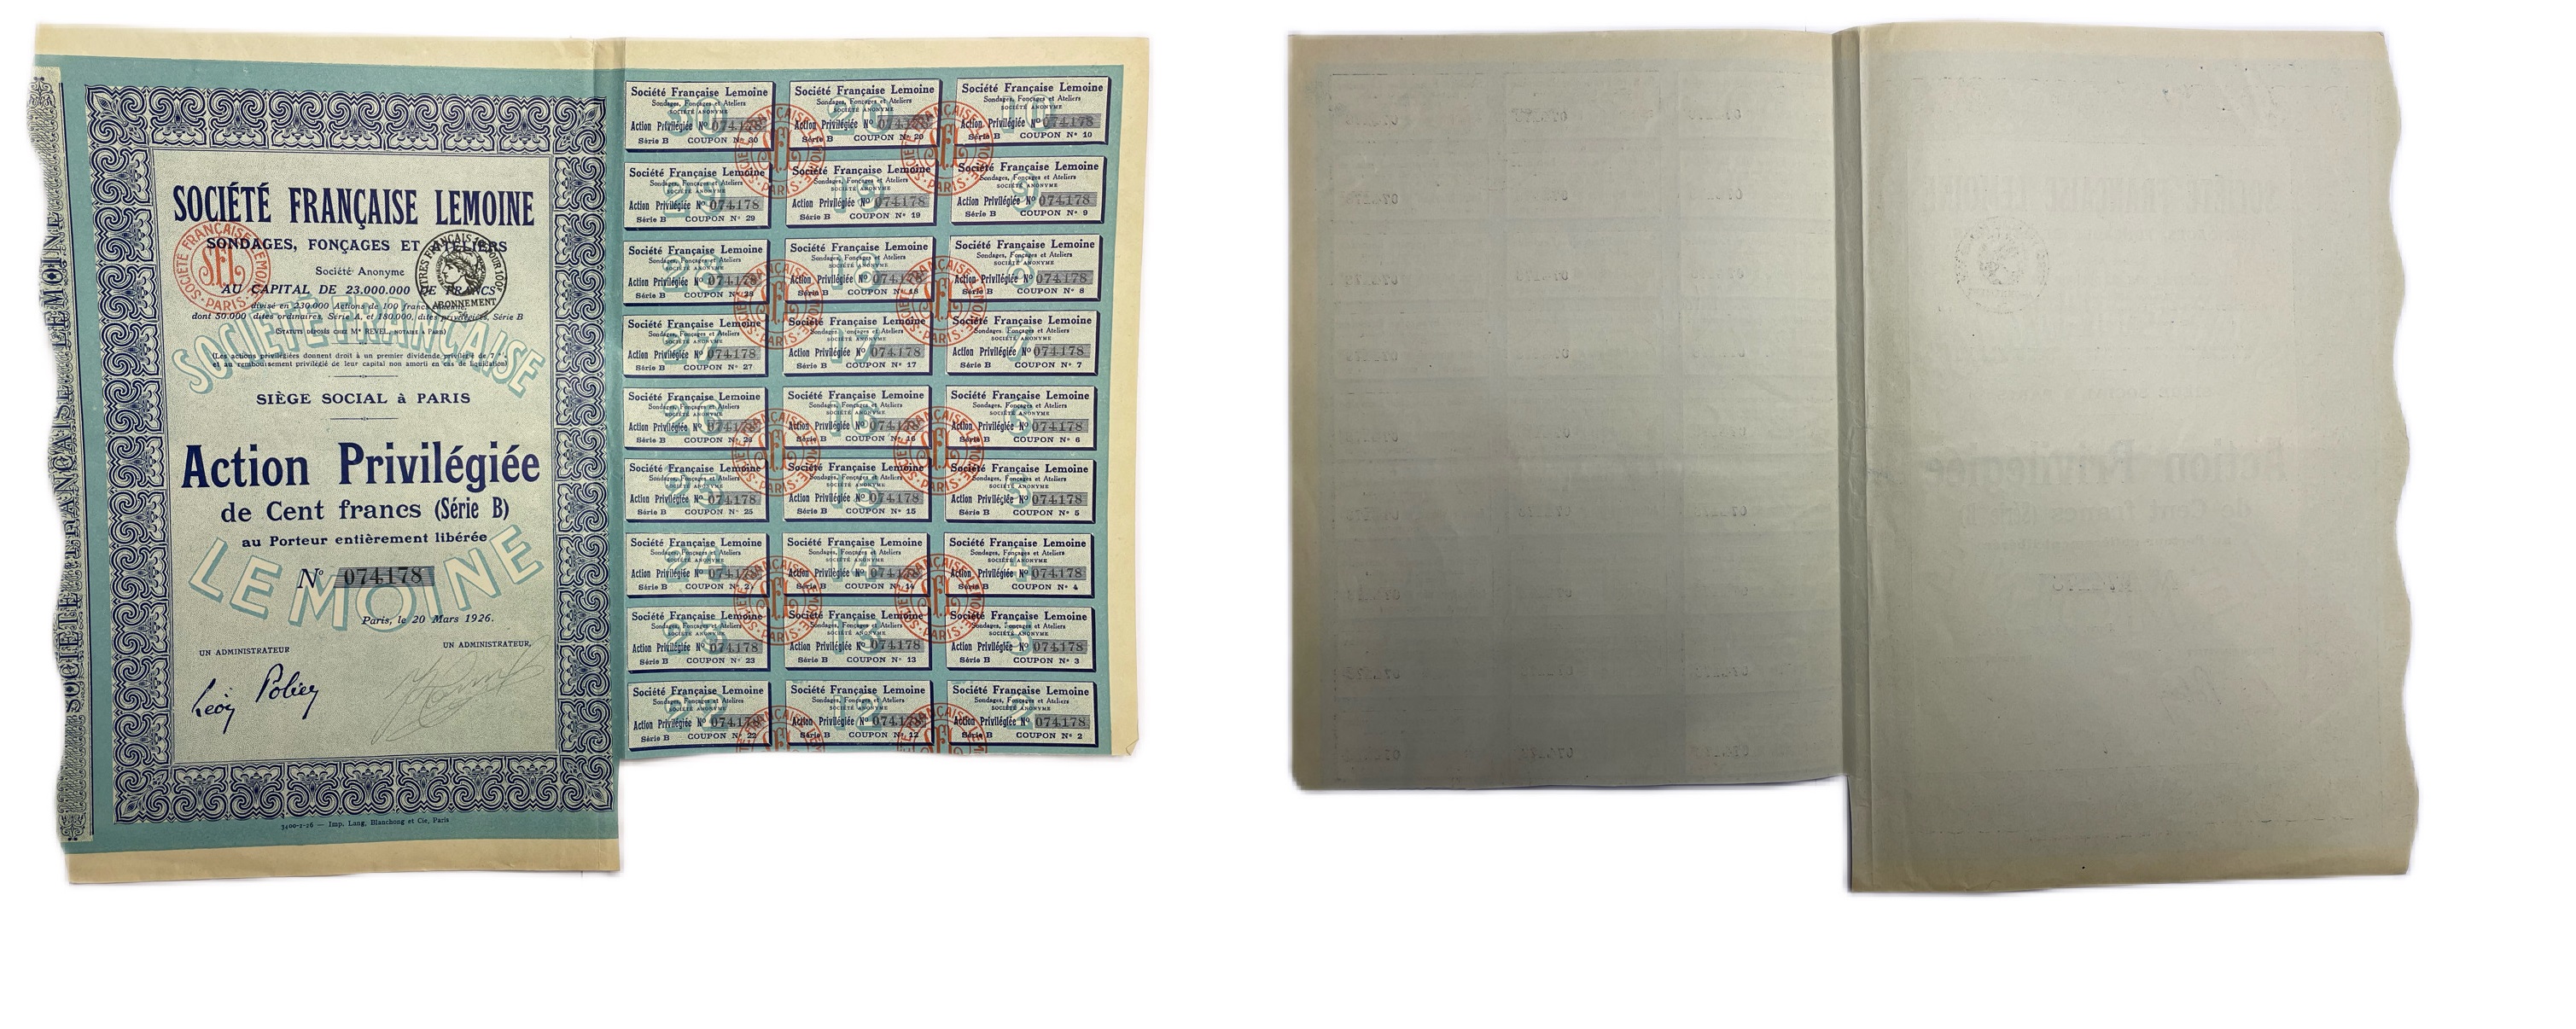 SOCIÉTÉ FRANÇAISE LEMOINE
SOCIÉTÉ FRANÇAISE LEMOINE
SONDAGES, FONÇAGES ET ATELIERS
SOCIÉTÉ FRANÇAISE LEMOINE
PARIS
TITRES FRANÇAIS POUR 100
ABONNEMENT
Société Anonyme
AU CAPITAL DE 23.000.000 DE FRANCS
divisé en 230.000 Actions de 100 francs
dont 50.000 dites ordinaires, Série A, et 180.000, dites privilégiées, Série B
(STATUTS DÉPOSÉS CHEZ Me REVEL, NOTAIRE A PARIS)
SOCIÉTÉ FRANÇAISE
(Les actions privilégiées donnent droit à un premier dividende privilégié de 7 %
et au remboursement privilégié de leur capital non amorti en cas de liquidation)
SIÈGE SOCIAL à PARIS
Action Privilégiée
de Cent francs (Série B)
au Porteur entièrement libérée
LEMOINE
No 074,178
Paris, le 20 Mars 1926.
UN ADMINISTRATEUR
UN ADMINISTRATEUR,
Léon Polier
3400-2-26 — Imp. Lang, Blanchong et Cie, Paris
Société Française Lemoine Société Française Lemoine Société Française Lemoine
Sondages, Fonçages et Ateliers Sondages, Fonçages et Ateliers Sondages, Fonçages et Ateliers
SOCIÉTÉ ANONYME SOCIÉTÉ ANONYME SOCIÉTÉ ANONYME
Action Privilégiée No 074,178 Action Privilégiée No 074,178 Action Privilégiée No 074,178
Série B COUPON No 30 Série B COUPON No 20 Série B COUPON No 10
Société Française Lemoine Société Française Lemoine Société Française Lemoine
Sondages, Fonçages et Ateliers Sondages, Fonçages et Ateliers Sondages, Fonçages et Ateliers
SOCIÉTÉ ANONYME SOCIÉTÉ ANONYME SOCIÉTÉ ANONYME
Action Privilégiée No 074,178 Action Privilégiée No 074,178 Action Privilégiée No 074,178
Série B COUPON No 29 Série B COUPON No 19 Série B COUPON No 9
Société Française Lemoine Société Française Lemoine Société Française Lemoine
Sondages, Fonçages et Ateliers Sondages, Fonçages et Ateliers Sondages, Fonçages et Ateliers
SOCIÉTÉ ANONYME SOCIÉTÉ ANONYME SOCIÉTÉ ANONYME
Action Privilégiée No 074,178 Action Privilégiée No 074,178 Action Privilégiée No 074,178
Série B COUPON No 28 Série B COUPON No 18 Série B COUPON No 8
Société Française Lemoine Société Française Lemoine Société Française Lemoine
Sondages, Fonçages et Ateliers Sondages, Fonçages et Ateliers Sondages, Fonçages et Ateliers
SOCIÉTÉ ANONYME SOCIÉTÉ ANONYME SOCIÉTÉ ANONYME
Action Privilégiée No 074,178 Action Privilégiée No 074,178 Action Privilégiée No 074,178
Série B COUPON No 27 Série B COUPON No 17 Série B COUPON No 7
Société Française Lemoine Société Française Lemoine Société Française Lemoine
Sondages, Fonçages et Ateliers Sondages, Fonçages et Ateliers Sondages, Fonçages et Ateliers
SOCIÉTÉ ANONYME SOCIÉTÉ ANONYME SOCIÉTÉ ANONYME
Action Privilégiée No 074,178 Action Privilégiée No 074,178 Action Privilégiée No 074,178
Série B COUPON No 26 Série B COUPON No 16 Série B COUPON No 6
Société Française Lemoine Société Française Lemoine Société Française Lemoine
Sondages, Fonçages et Ateliers Sondages, Fonçages et Ateliers Sondages, Fonçages et Ateliers
SOCIÉTÉ ANONYME SOCIÉTÉ ANONYME SOCIÉTÉ ANONYME
Action Privilégiée No 074,178 Action Privilégiée No 074,178 Action Privilégiée No 074,178
Série B COUPON No 25 Série B COUPON No 15 Série B COUPON No 5
Société Française Lemoine Société Française Lemoine Société Française Lemoine
Sondages, Fonçages et Ateliers Sondages, Fonçages et Ateliers Sondages, Fonçages et Ateliers
SOCIÉTÉ ANONYME SOCIÉTÉ ANONYME SOCIÉTÉ ANONYME
Action Privilégiée No 074,178 Action Privilégiée No 074,178 Action Privilégiée No 074,178
Série B COUPON No 24 Série B COUPON No 14 Série B COUPON No 4
Société Française Lemoine Société Française Lemoine Société Française Lemoine
Sondages, Fonçages et Ateliers Sondages, Fonçages et Ateliers Sondages, Fonçages et Ateliers
SOCIÉTÉ ANONYME SOCIÉTÉ ANONYME SOCIÉTÉ ANONYME
Action Privilégiée No 074,178 Action Privilégiée No 074,178 Action Privilégiée No 074,178
Série B COUPON No 23 Série B COUPON No 13 Série B COUPON No 3
Société Française Lemoine Société Française Lemoine Société Française Lemoine
Sondages, Fonçages et Ateliers Sondages, Fonçages et Ateliers Sondages, Fonçages et Ateliers
SOCIÉTÉ ANONYME SOCIÉTÉ ANONYME SOCIÉTÉ ANONYME
Action Privilégiée No 074,178 Action Privilégiée No 074,178 Action Privilégiée No 074,178
Série B COUPON No 22 Série B COUPON No 12 Série B COUPON No 2